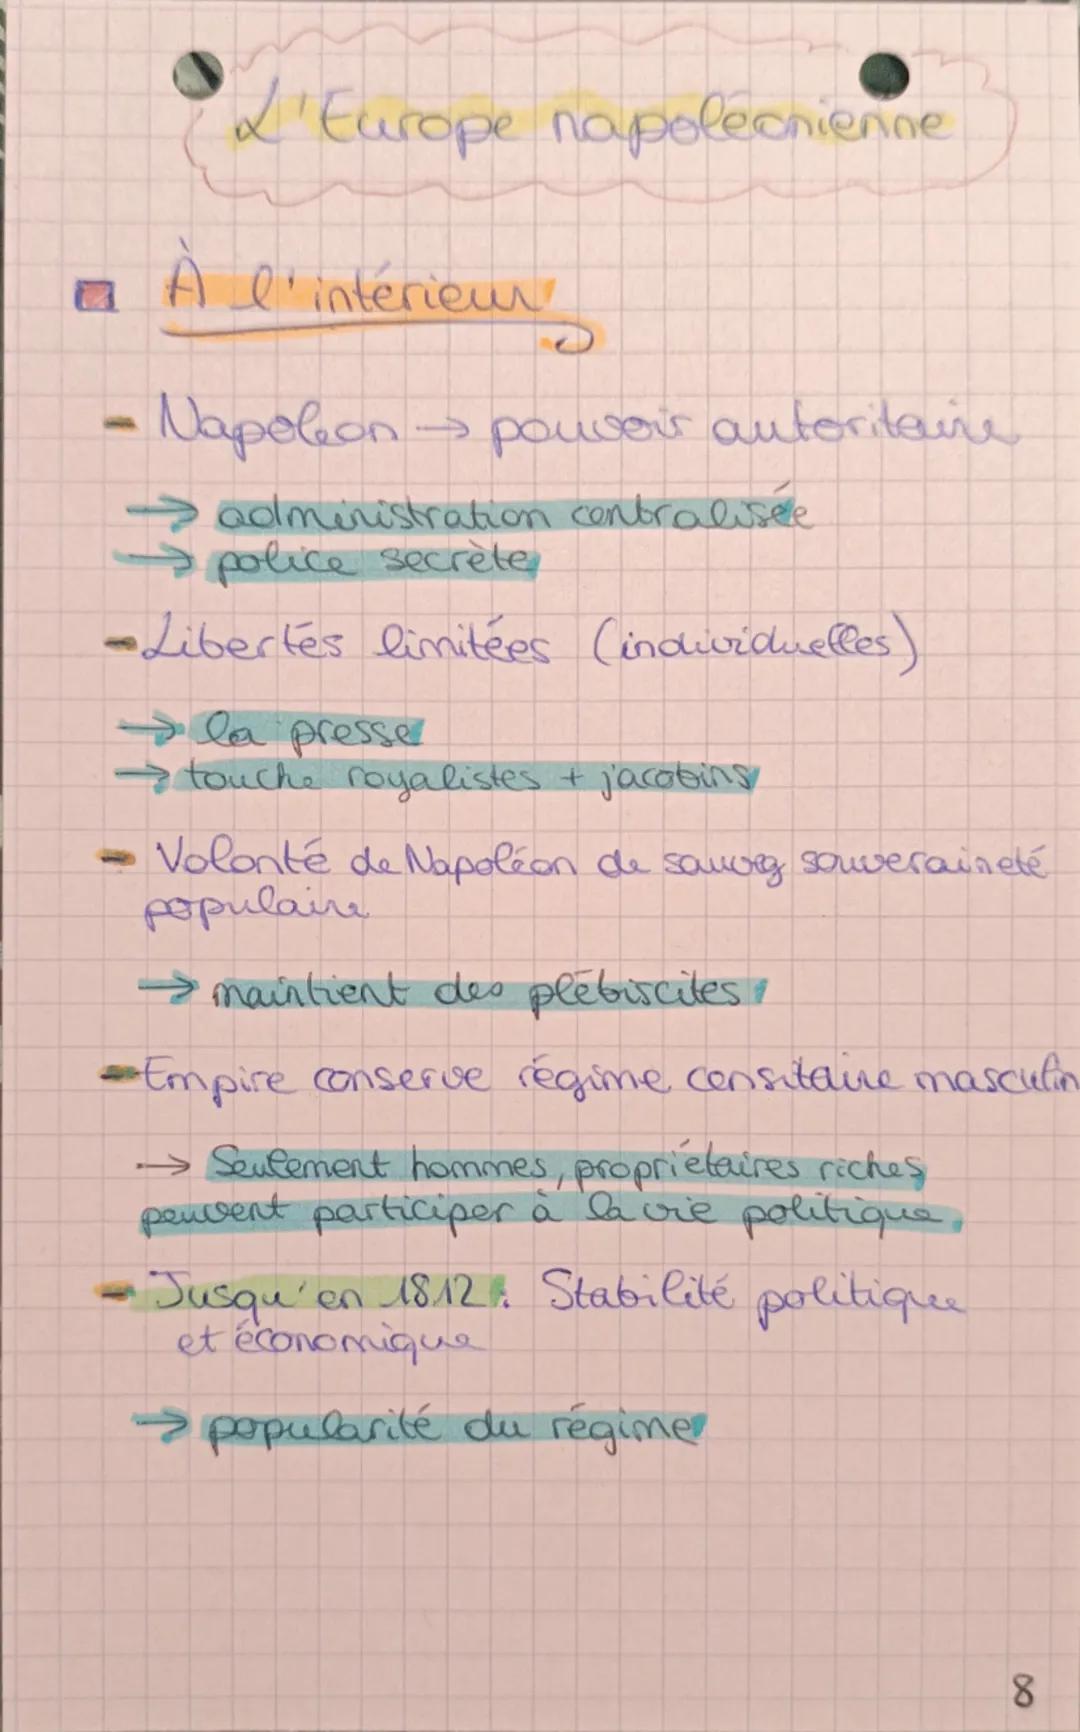 L'Europe napoléonienne
À l'intérieur
- Napoleon → pouvoir autoritaire
→ administration centralisée
→ police secrète
- Libertés limitées (individuelles)
→ la presse
→ touche royalistes + jacobins
- Volonté de Napoléon de souveraineté
populaire
→ maintient des plébiscites
- Empire conserve régime censitaire masculin
→ Seulement hommes, propriétaires riches
peuvent participer à la vie politique.
- Jusqu'en 1812 : Stabilité politique
et économique
→ popularité du régime
8